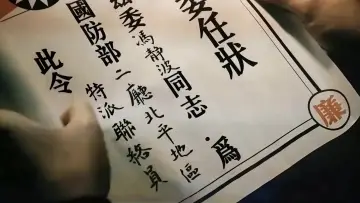 委任狀
茲委馮靜波同志·為
國防部二廳北平地區
特派聯絡員
此令